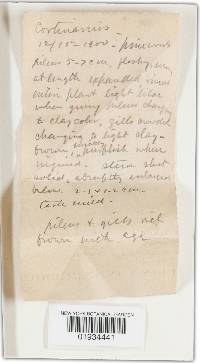 Cortinarius.
10/15-1900 -
pileus 5-7 cm, fleshy,
at length expanded,
entire plant light lilac
when young, pileus changing
to clay color, gills
changing to light clay-
brown, purplish when
injured. stem short
solid, abruptly
below. 2-
Taste mild.
pileus & gills rich
brown with age
NEW YORK BOTANICAL GARDEN
01934441